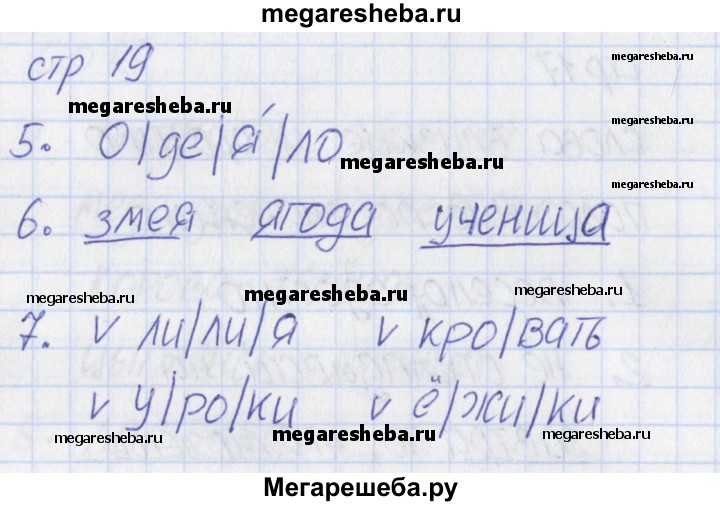 megaresheba.ru
стр 19
megaresheba.ru
megaresheba.ru
5. О|де|я́|ло
megaresheba.ru
megaresheba.ru
6. змея ягода ученица
megaresheba.ru
megaresheba.ru
megaresheba.ru
7. v ли|ли|я v кро|вать
v У|ро|ки v ё|жи|ки
megaresheba.ru
megaresheba.ru
megaresheba.ru
Мегарешеба.ру